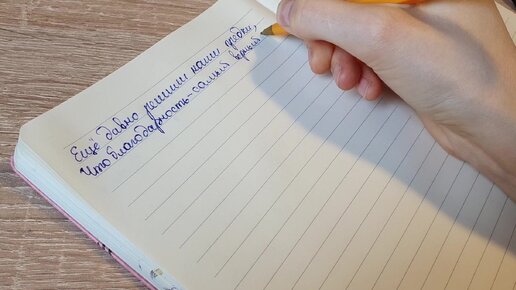 Ещё давно решили наши предки,
Что благодарность - самый верный